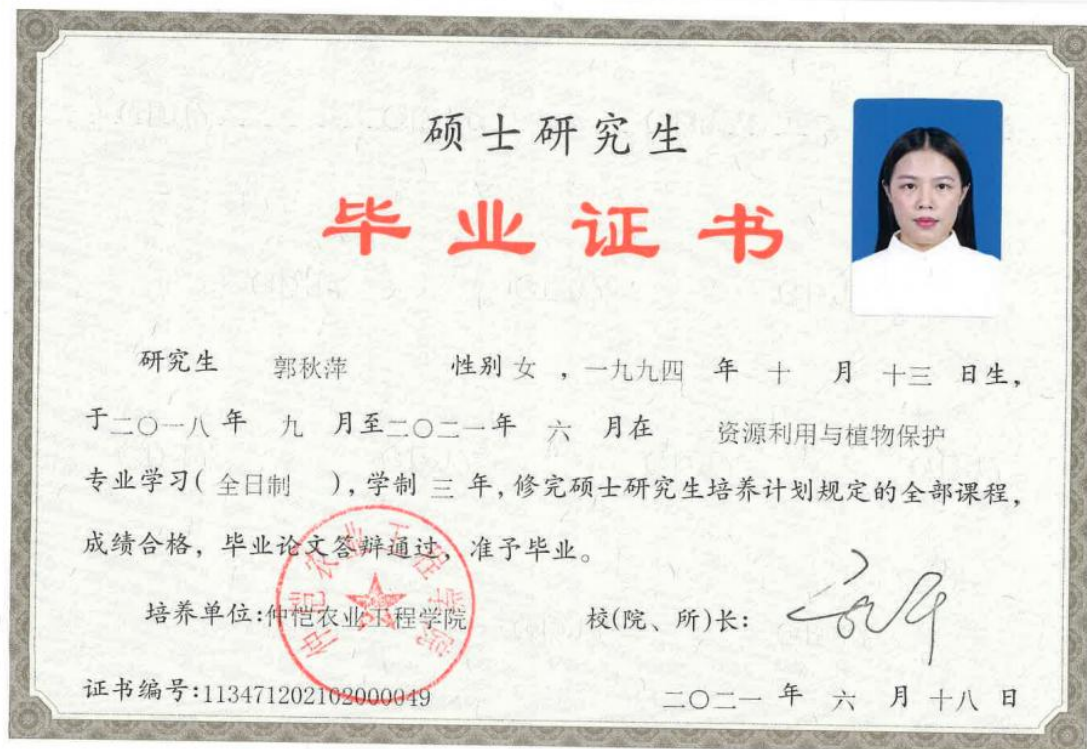 硕士研究生
毕业证书
研究生 郭秋萍 性别 女 ，一九九四 年 十 月 十三 日生，
于二〇一八 年 九 月至二〇二一年 六 月在 资源利用与植物保护
专业学习( 全日制 )，学制 三 年，修完硕士研究生培养计划规定的全部课程，
成绩合格，毕业论文答辩通过，准予毕业。
仲恺农业工程学院
培养单位:仲恺农业工程学院 校(院、所)长：
证书编号:113471202102000049 二〇二一 年 六 月 十八 日